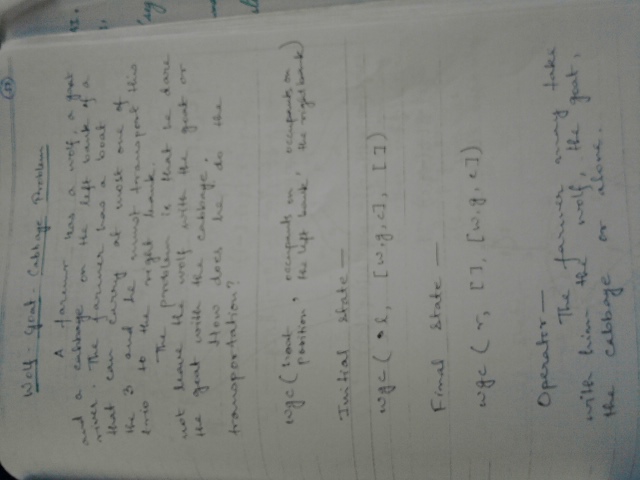 Wolf - Goat - Cabbage Problem
A farmer has a wolf, a goat
and a cabbage on the left bank of a
river. The farmer has a boat
that can carry at most one of
the 3 and he must transport this
trio to the right bank.
The problem is that he dare
not leave the wolf with the goat or
the goat with the cabbage.
How does he do the
transportation?
wgc (boat position, occupants on the left bank, occupants on the right bank)
Initial State —
wgc ( l, [w,g,c], [])
Final State —
wgc ( r, [], [w,g,c])
Operator —
The farmer may take
with him the wolf, the goat,
the cabbage or alone.